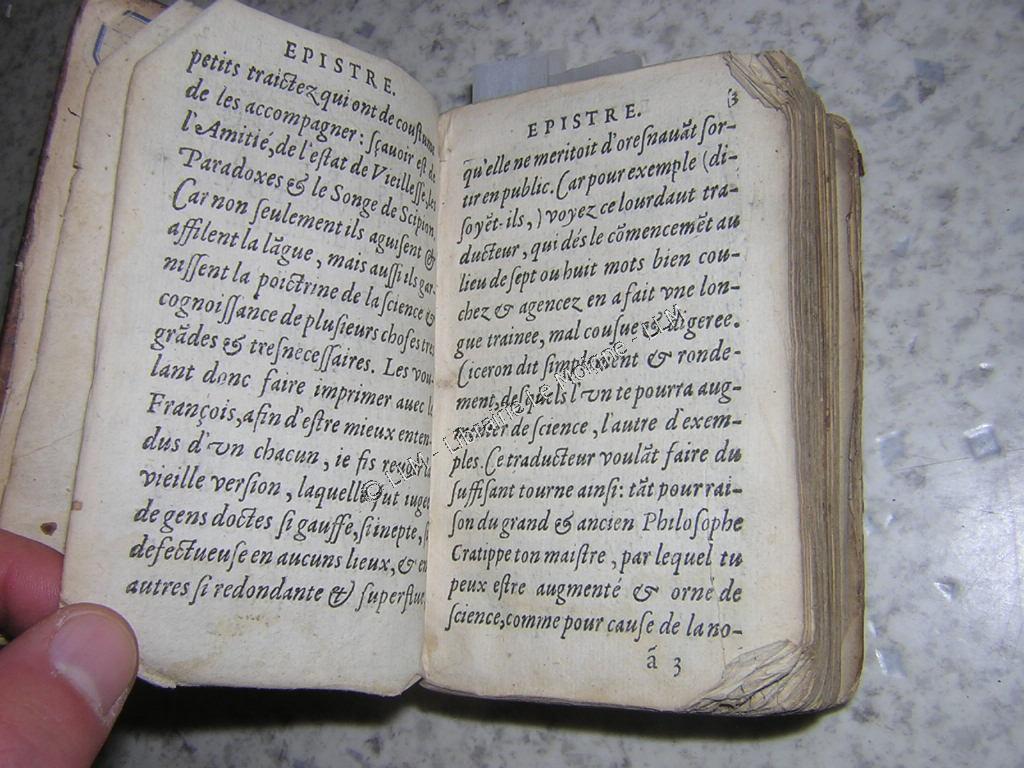 EPISTRE.
petits traictez qui ont de coustume
de les accompagner: sçauoir est de
l'Amitié, de l'estat de Vieillesse, les
Paradoxes & le Songe de Scipion.
Car non seulement ils aguisent &
affilent la lãgue, mais aussi ils gar-
nissent la poictrine de la science &
cognoissance de plusieurs choses tres
grãdes & tresnecessaires. Les vou-
lant donc faire imprimer auec le
François, afin d'estre mieux enten-
dus d'vn chacun, ie fis reuoir la
vieille version, laquelle fut iugee
de gens doctes si gauffe, si inepte, si
defectueuse en aucuns lieux, & en
autres si redondante & superflue,
EPISTRE. 3
qu'elle ne meritoit d'oresnauãt sor-
tir en public. Car pour exemple (di-
soyẽt-ils,) voyez ce lourdaut tra-
ducteur, qui dés le cõmencemẽt au
lieu de sept ou huit mots bien cou-
chez & agencez en a fait vne lon-
gue trainee, mal cousue & digeree.
Ciceron dit simplement & ronde-
ment, desquels l'vn te pourra aug-
menter de science, l'autre d'exem-
ples. Ce traducteur voulãt faire du
suffisant tourne ainsi: tãt pour rai-
son du grand & ancien Philosophe
Cratippe ton maistre, par lequel tu
peux estre augmenté & orné de
science, comme pour cause de la no-
ã 3
© LLM - Librairie Le Moigne - LLM